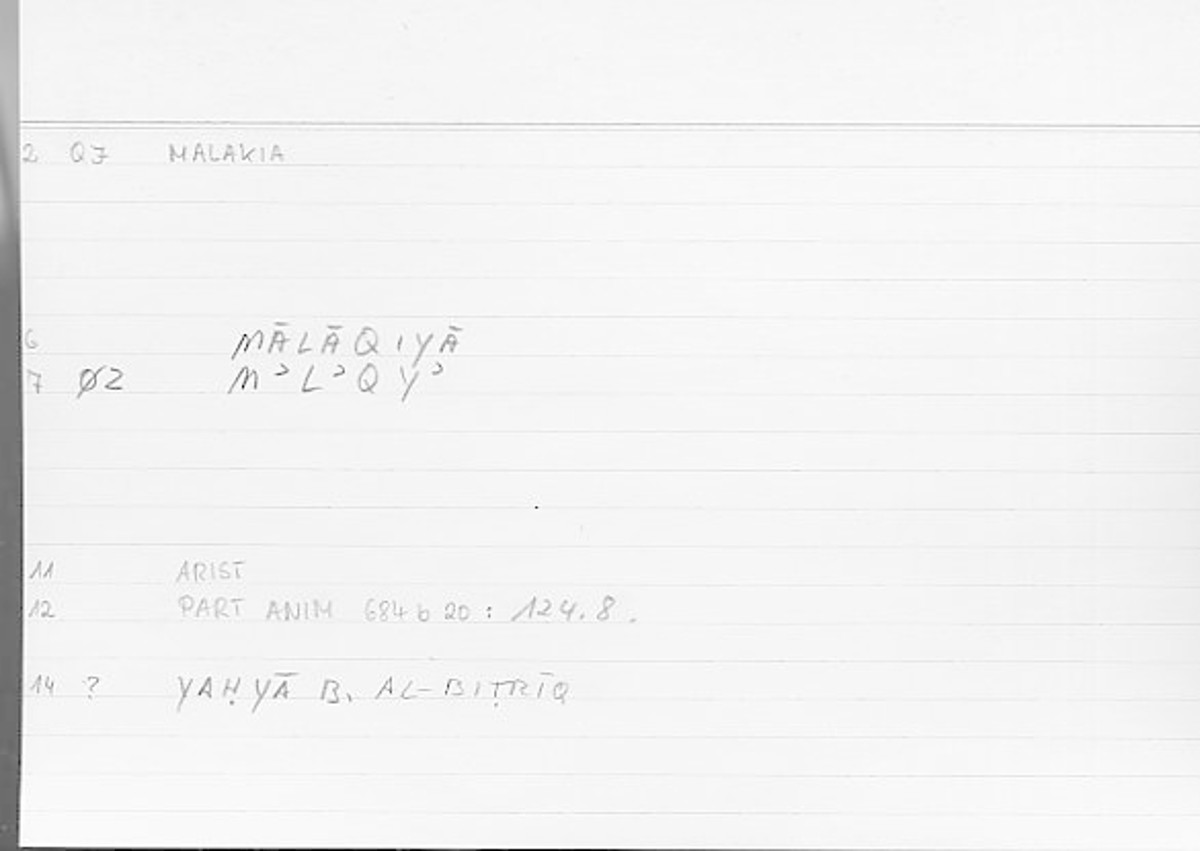 2 Q7 MALAKIA
6 MĀLĀQIYĀ
7 Ø2 MʾLʾQYʾ
11 ARIST
12 PART ANIM 684 b 20 : 124.8.
14 ? YAḤYĀ B. AL-BIṬRĪQ